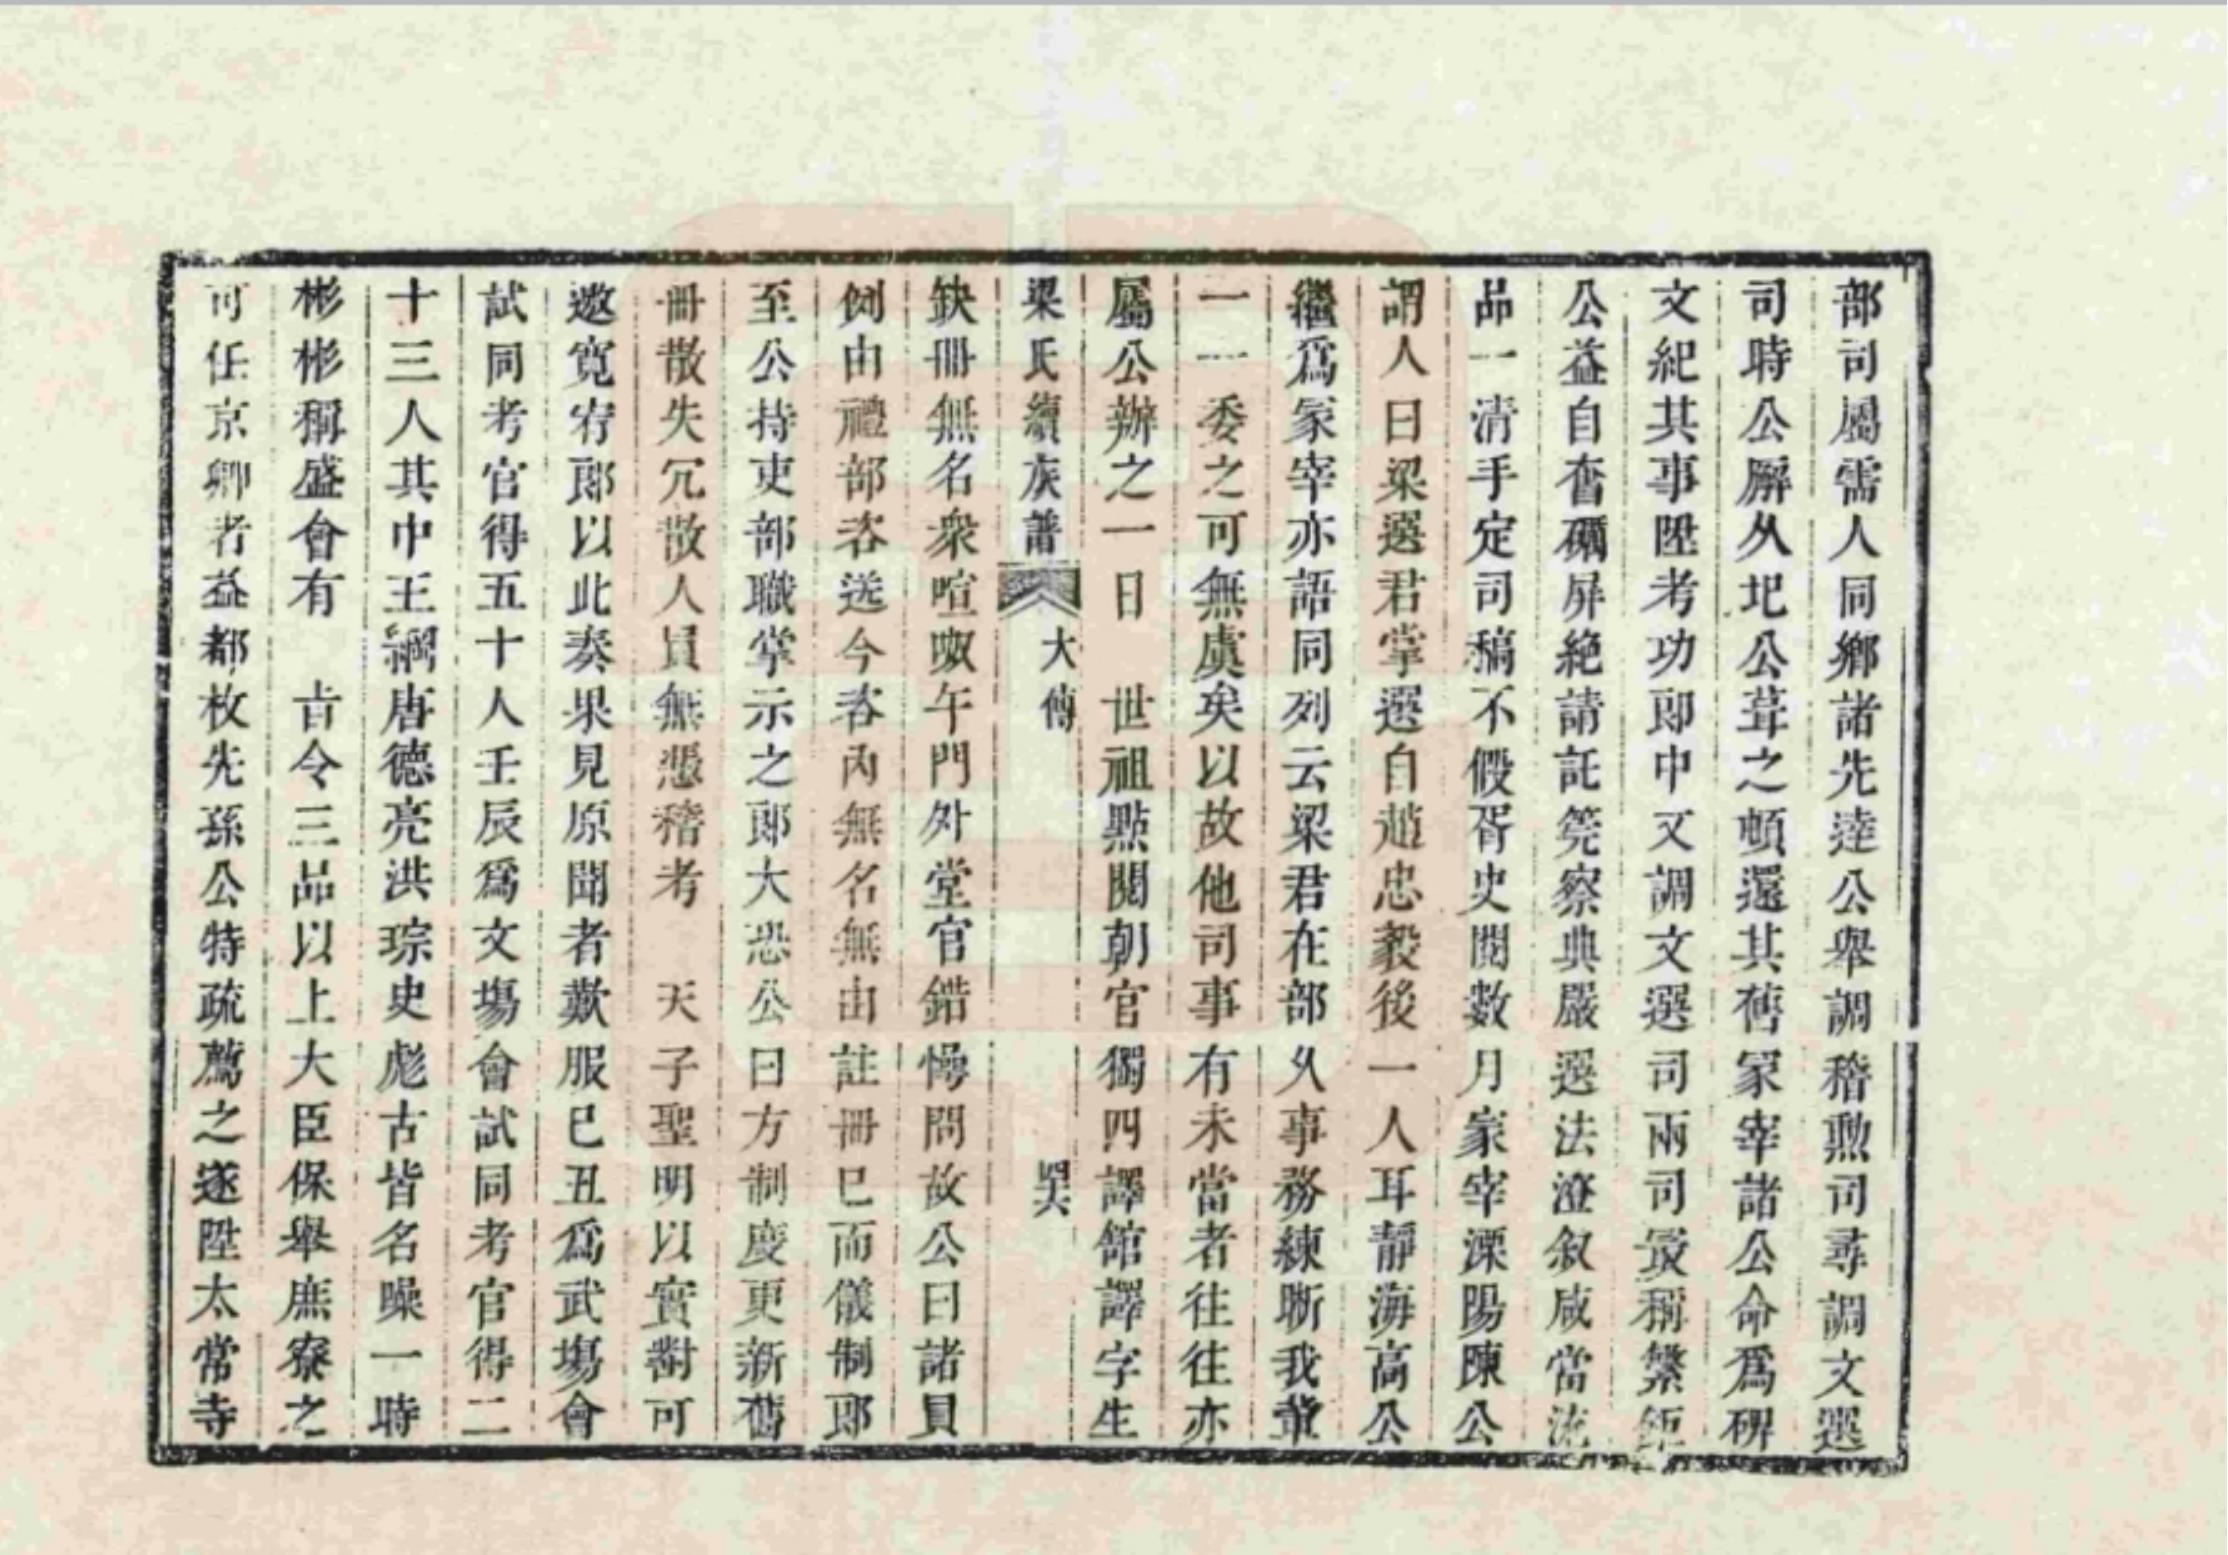 部司屬需人同鄉諸先逹公舉調稽勲司尋調文選
司時公廨久圯公葺之頓還其舊冢宰諸公命爲碑
文紀其事陞考功郎中又調文選司兩司最稱繁鉅
公益自奮礪屏絶請託筦察典嚴選法澄叙咸當流
品一清手定司稿不假胥史閲数月冢宰溧陽陳公
謂人曰梁選君掌選自趙忠毅後一人耳靜海高公
繼爲冢宰亦語同列云梁君在部久事務練晰我輩
一一委之可無虞矣以故他司事有未當者往往亦
屬公辦之一日 世祖點閱朝官獨四譯館譯字生
梁氏續族譜 大傳 吴
缺冊無名衆喧呶午門外堂官錯愕問故公曰諸員
例由禮部咨送今咨內無名無由註冊已而儀制郎
至公持吏部職掌示之郎大恐公曰方制度更新舊
冊散失冗散人員無憑稽考 天子聖明以實對可
邀寛宥郎以此奏果見原聞者歎服巳丑爲武塲會
試同考官得五十人壬辰爲文塲會試同考官得二
十三人其中王綱唐德亮洪琮史彪古皆名噪一時
彬彬稱盛會有 㫖令三品以上大臣保舉庶寮之
可任京卿者益都枚先孫公特疏薦之遂陞太常寺